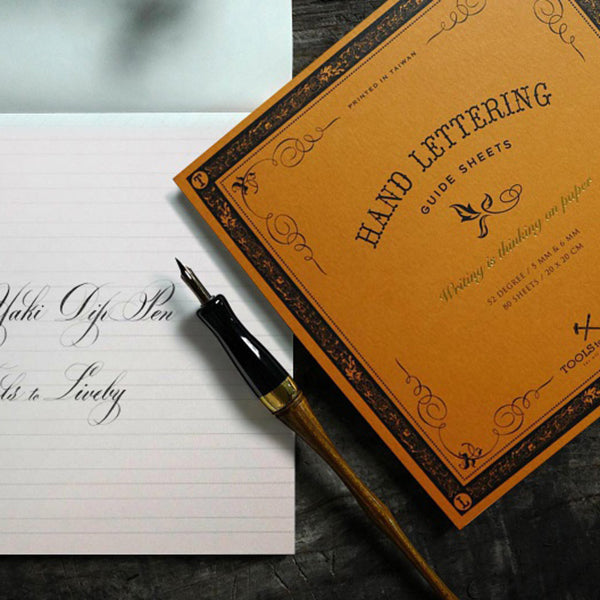 Yaki Dip Pen
to Liveby
PRINTED IN TAIWAN
HAND LETTERING
GUIDE SHEETS
Writing is thinking on paper
52 DEGREE / 5 MM & 6 MM
80 SHEETS / 20 X 20 CM
TOOLS
T
L